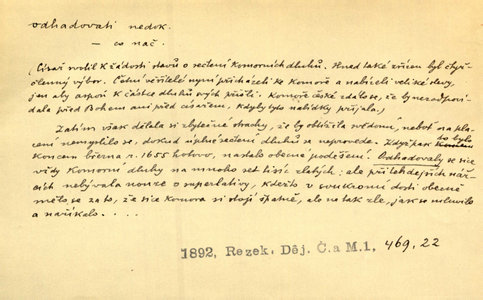 odhadovati nedok.
— co nač.
(Císař svolil k žádosti stavů o sečtení komorních dluhů. Hned také zřízen byl čtyř-
členný výbor. Četní věřitelé nyní přicházeli ke Komoře a nabízeli veliké slevy,
jen aby aspoň k částce dluhů svých přišli. Komoře české zdálo se, že by nezodpoví-
dala před Bohem ani před císařem, kdyby tyto nabídky přijala.)
Zatím však dělala si zbytečné strachy, že by obtížila svědomí, neboť na pla-
cení nemyslilo se, dokud úplné sečtení dluhů se neprovede. Když pak to bylo
koncem března r. 1655 hotovo, nastalo obecné podešení. Odhadovaly se sice
vždy Komorní dluhy na mnoho set tisíc zlatých, ale při tehdejších nář-
cích nebývala nouze o superlativy, kdežto v soukromí dosti obecně
mělo se za to, že sice komora si stojí špatně, ale ne tak zle, jak se mluvilo
a naříkalo. . . .
1892, Rezek, Děj. Č. a M. 1, 469, 22